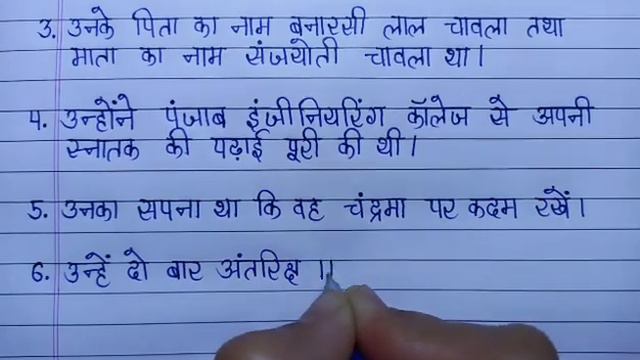 3. उनके पिता का नाम बनारसी लाल चावला तथा
माता का नाम संजयोती चावला था।
4. उन्होंने पंजाब इंजीनियरिंग कॉलेज से अपनी
स्नातक की पढ़ाई पूरी की थी।
5. उनका सपना था कि वह चंद्रमा पर कदम रखें।
6. उन्हें दो बार अंतरिक्ष